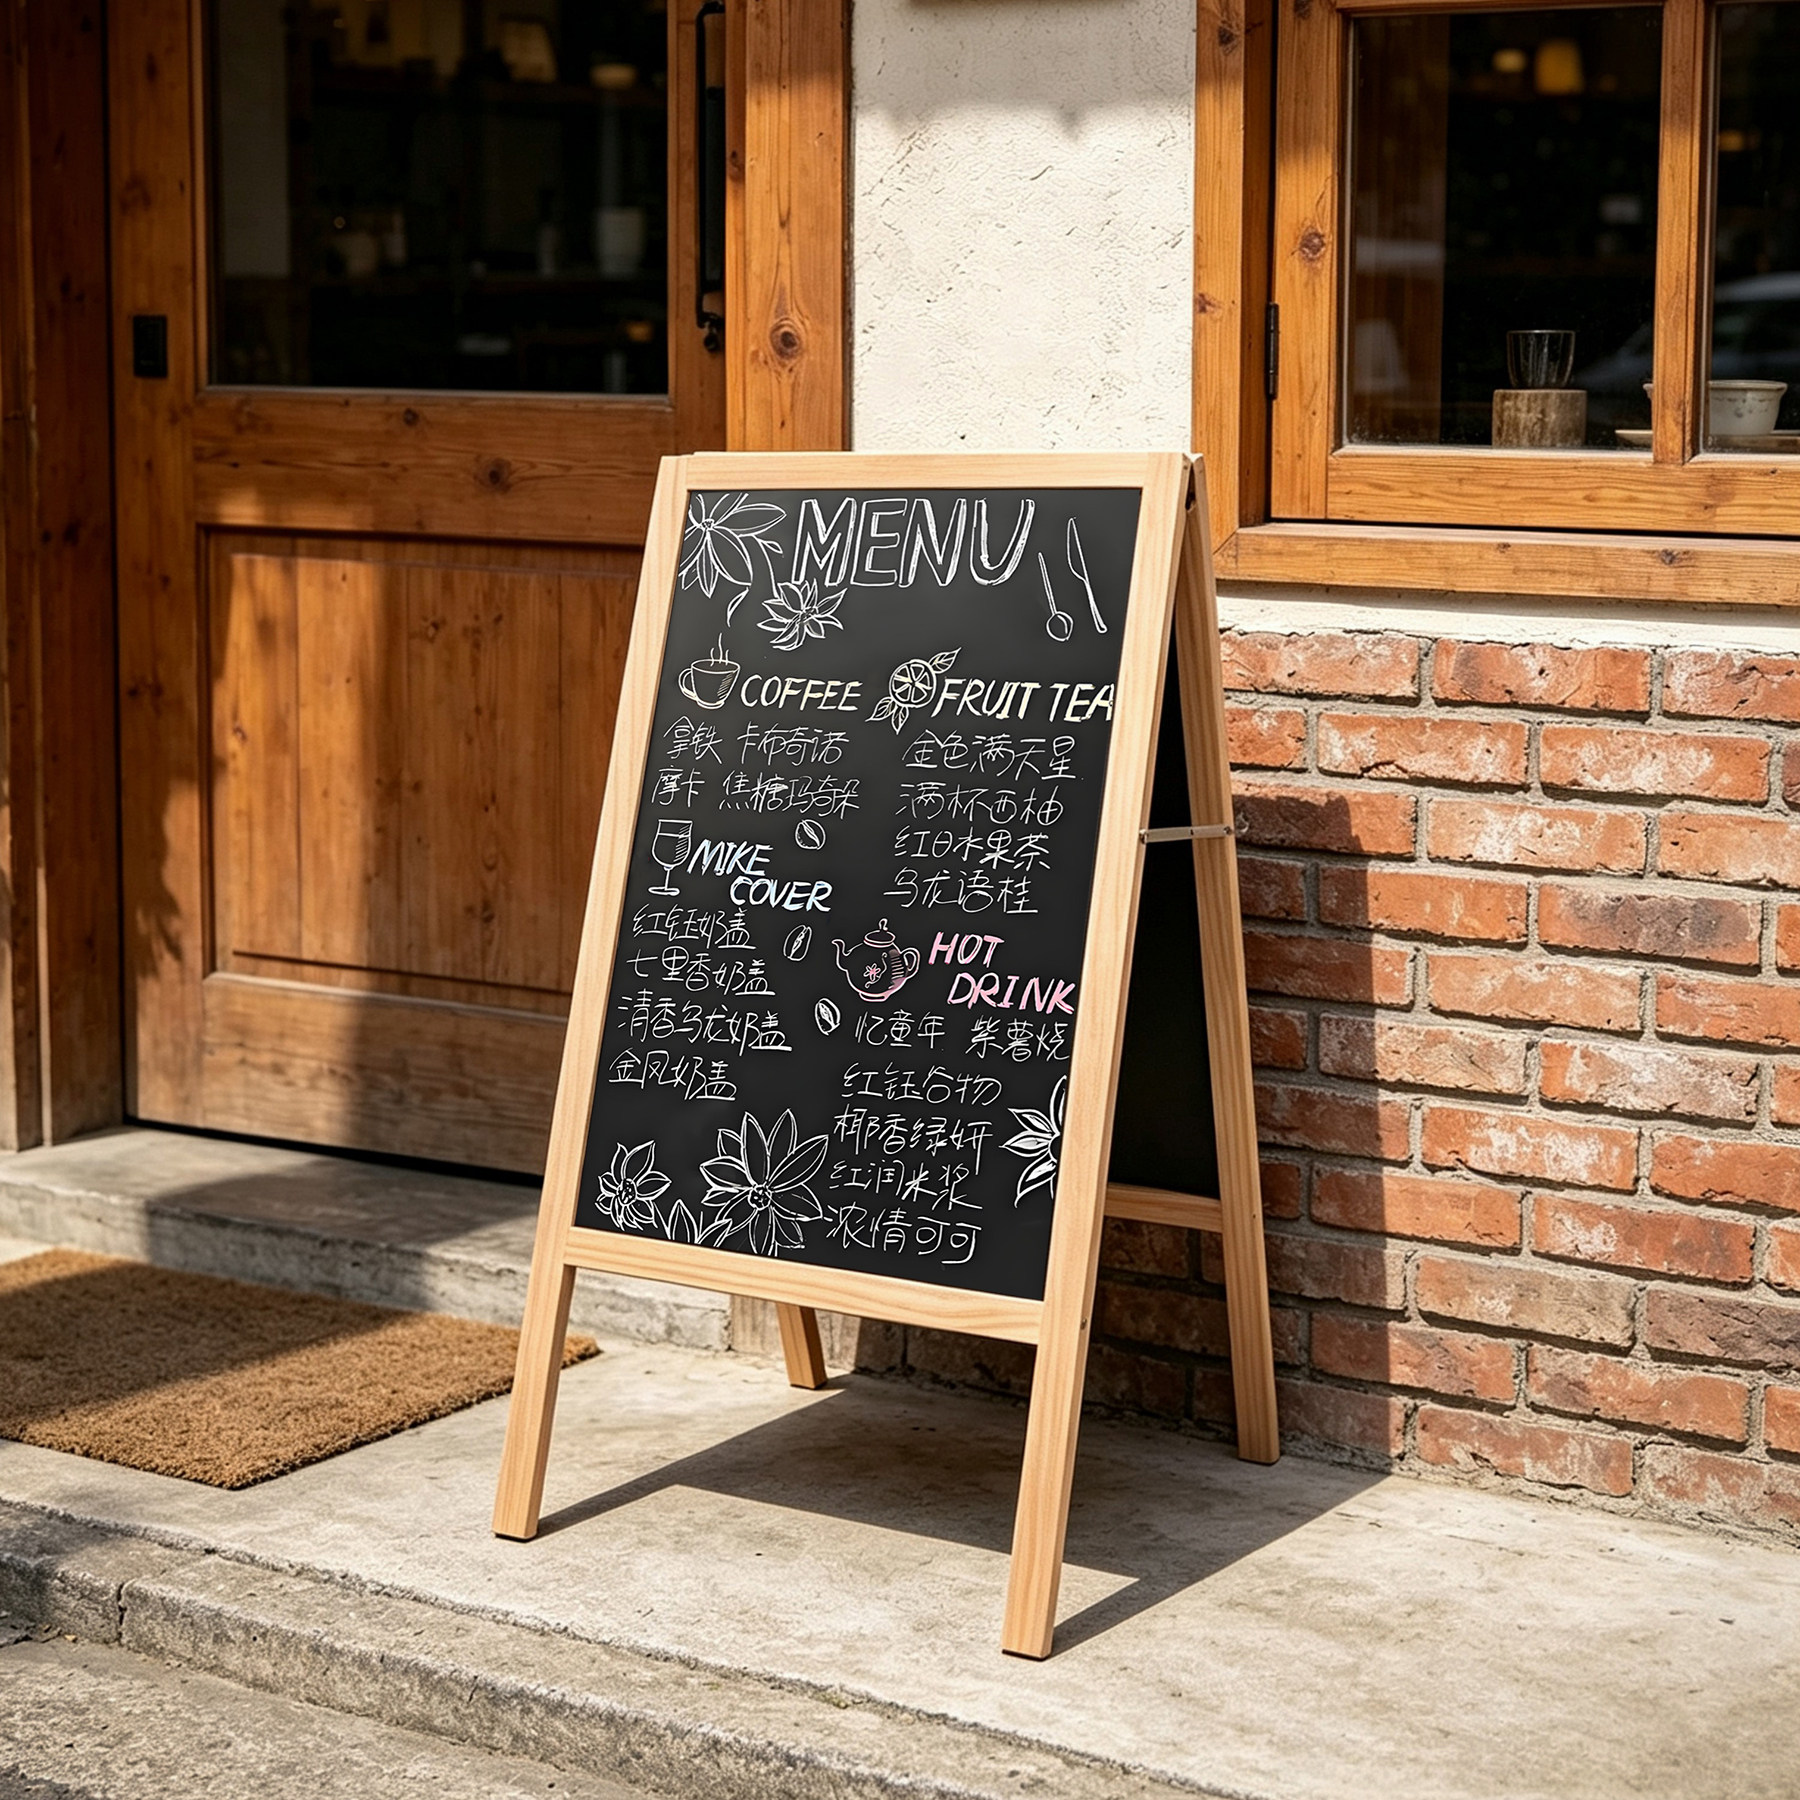 MENU
COFFEE
拿铁 卡布奇诺
摩卡 焦糖玛奇朵
MIKE
COVER
红钰奶盖
七里香奶盖
清香乌龙奶盖
金凤奶盖
FRUIT TEA
金色满天星
满杯西柚
红日水果茶
乌龙语桂
HOT
DRINK
忆童年 紫薯烧
红钰谷物
椰香绿妍
红润米浆
浓情可可